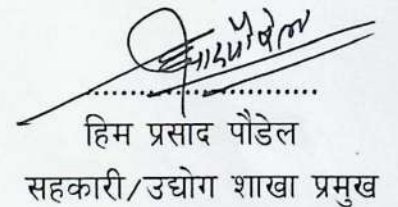 ..............................
हिम प्रसाद पौडेल
सहकारी/उद्योग शाखा प्रमुख